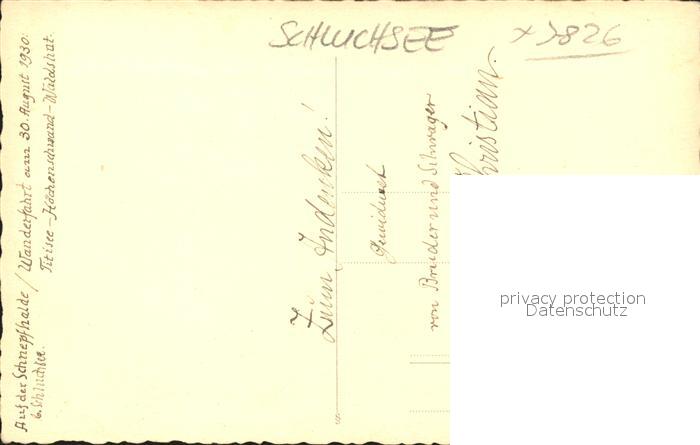 SCHLUCHSEE
x 7826
Auf der Schnepfhalde / Wanderfahrt am 30. August 1930.
b. Schluchsee. Titisee–Höchenschwand–Waldshut.
Zum Andenken!
Gewidmet
von Bruder und Schwager
Christian.
privacy protection
Datenschutz